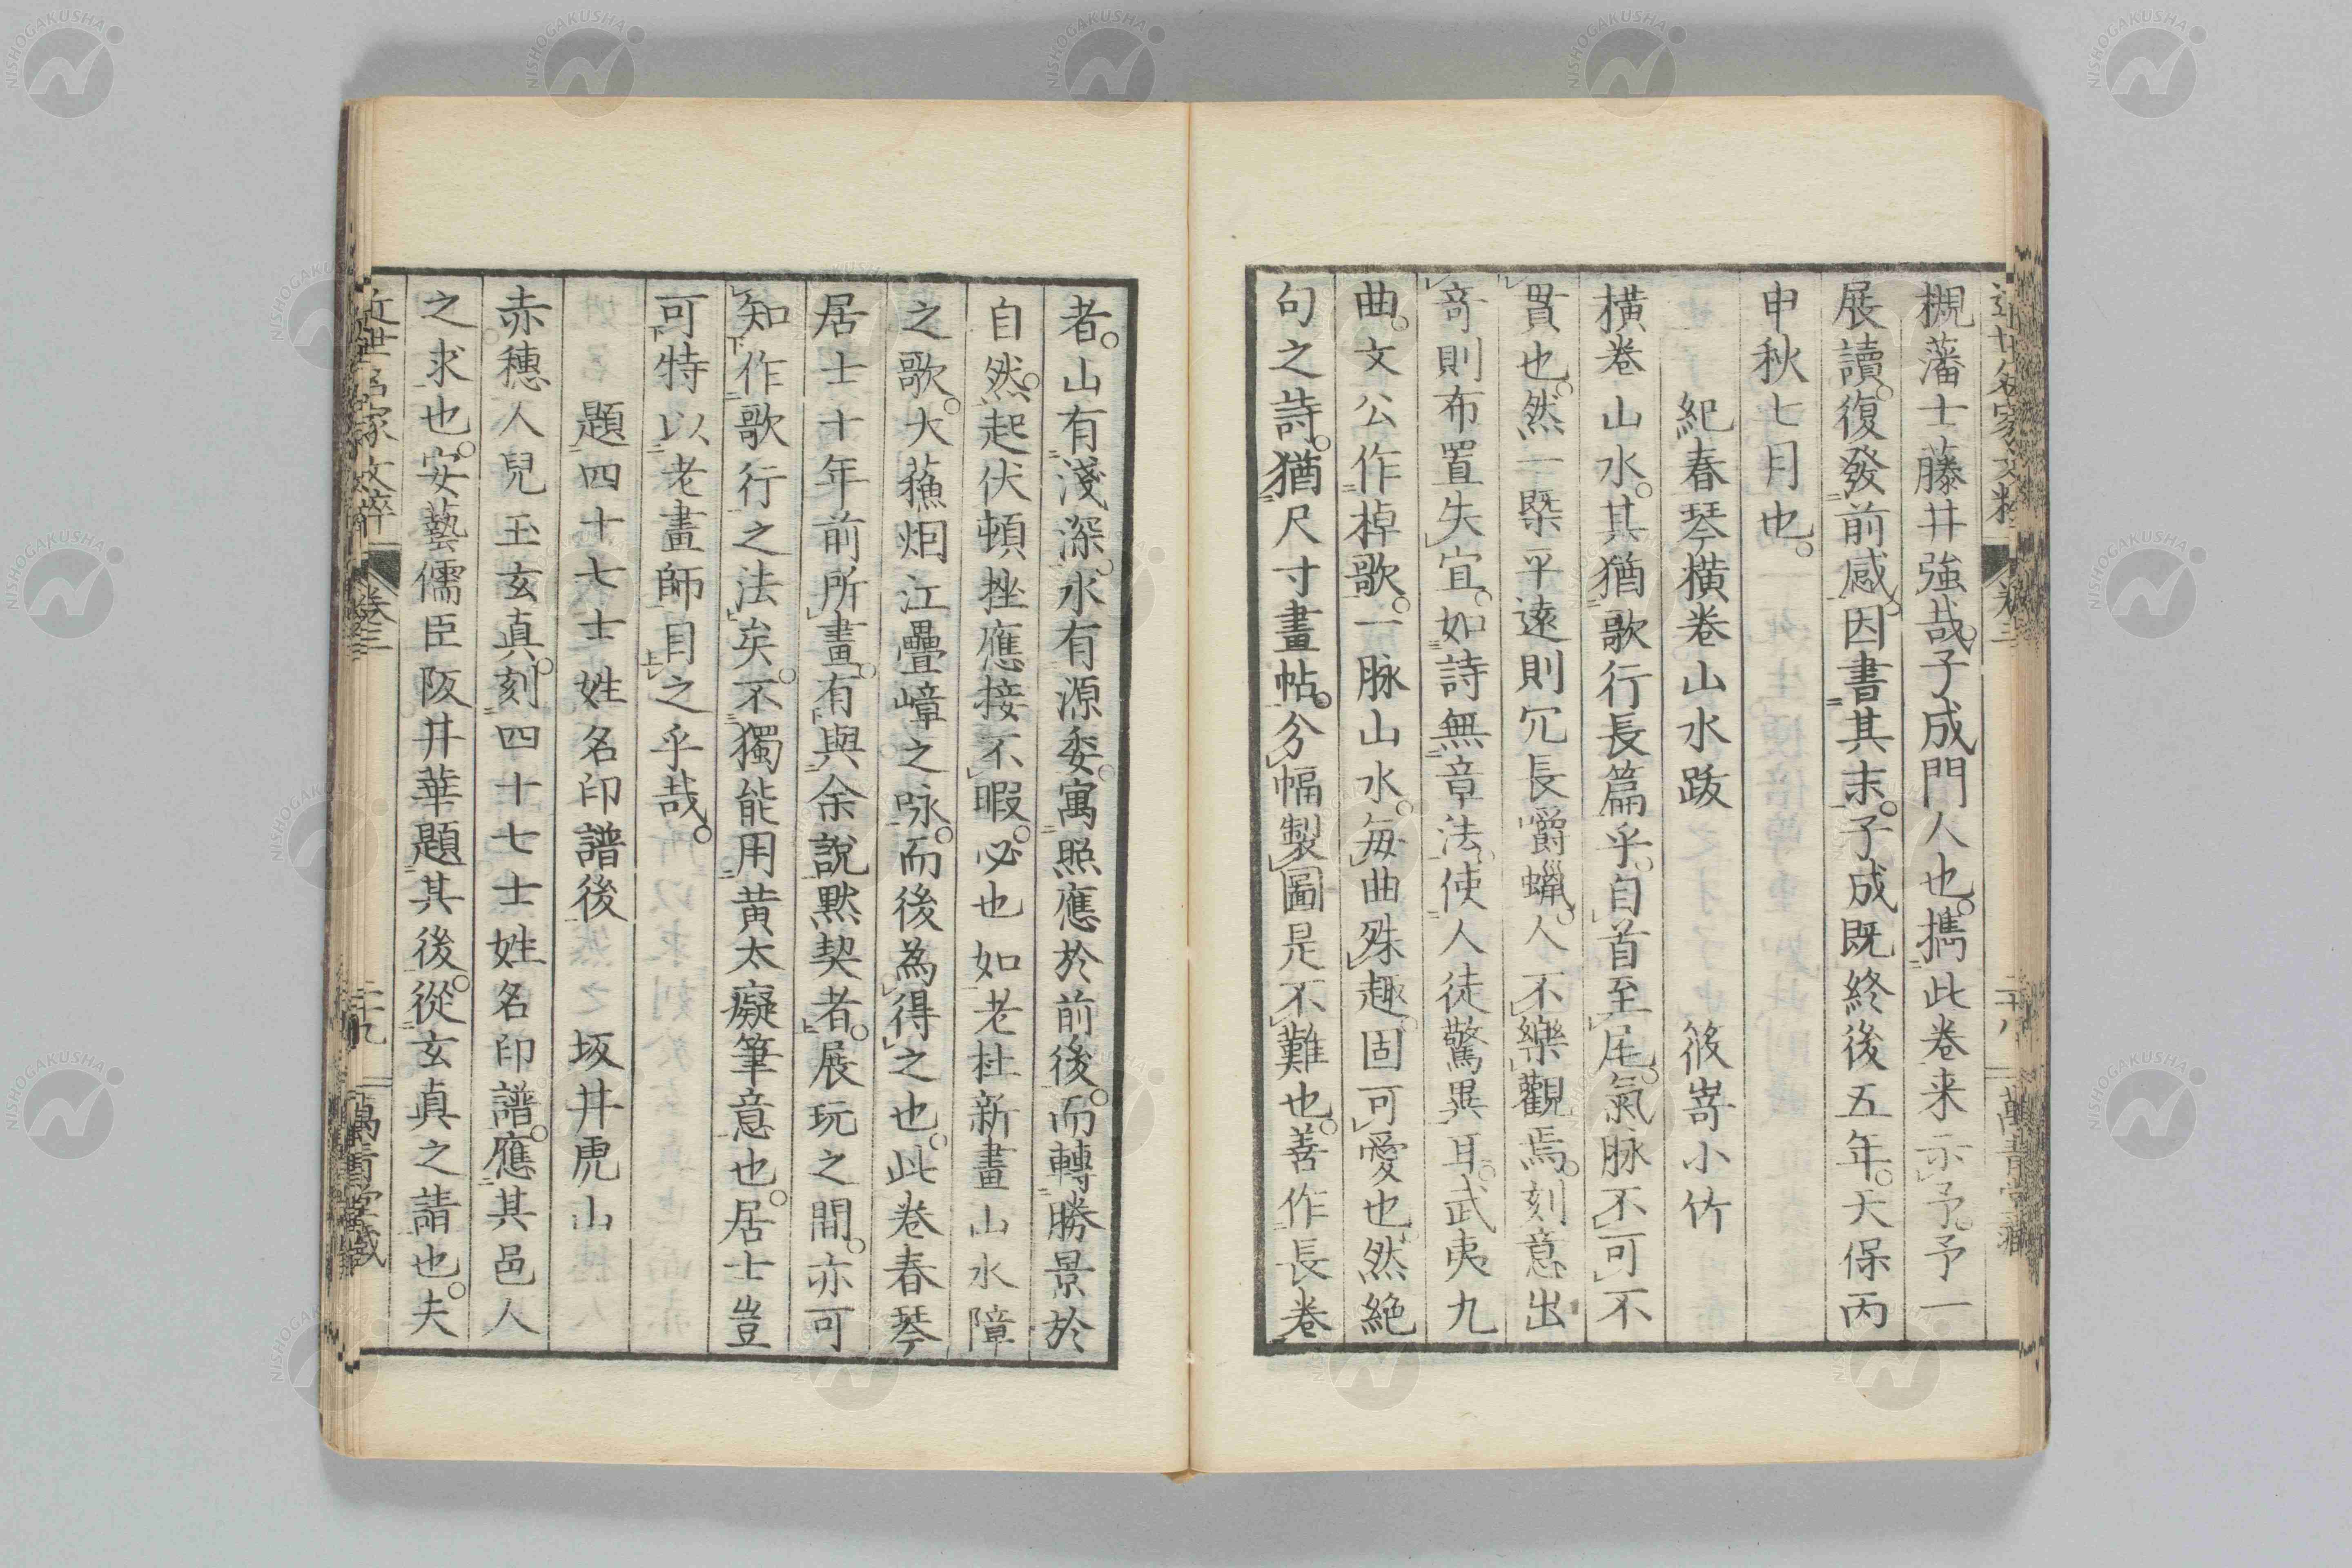 槻藩士藤井強哉子成門人也攜此卷来示予予一
展讀復發前感因書其末子成既終後五年天保丙
申秋七月也
紀春琴橫卷山水跋 筱嵜小竹
橫卷山水其猶歌行長篇乎自首至尾氣脉不可不
貫也然一槩平遠則冗長嚼蠟人不樂觀焉刻意出
奇則布置失宜如詩無章法使人徒驚異耳武夷九
曲文公作棹歌一脉山水每曲殊趣固可愛也然絶
句之詩猶尺寸畫帖分幅製圖是不難也善作長卷
者山有淺深水有源委寓照應於前後而轉勝景於
自然起伏頓挫應接不暇必也如老杜新畫山水障
之歌大蘓烟江疊嶂之咏而後為得之也此卷春琴
居士十年前所畫有與余說默契者展玩之間亦可
知作歌行之法矣不獨能用黄太癡筆意也居士豈
可特以老畫師目之乎哉
題四十七士姓名印譜後 坂井虎山
赤穗人兒玉玄真刻四十七士姓名印譜應其邑人
之求也安藝儒臣阪井華題其後從玄真之請也夫
近世名家文粹 卷三 二十九 萬青堂藏